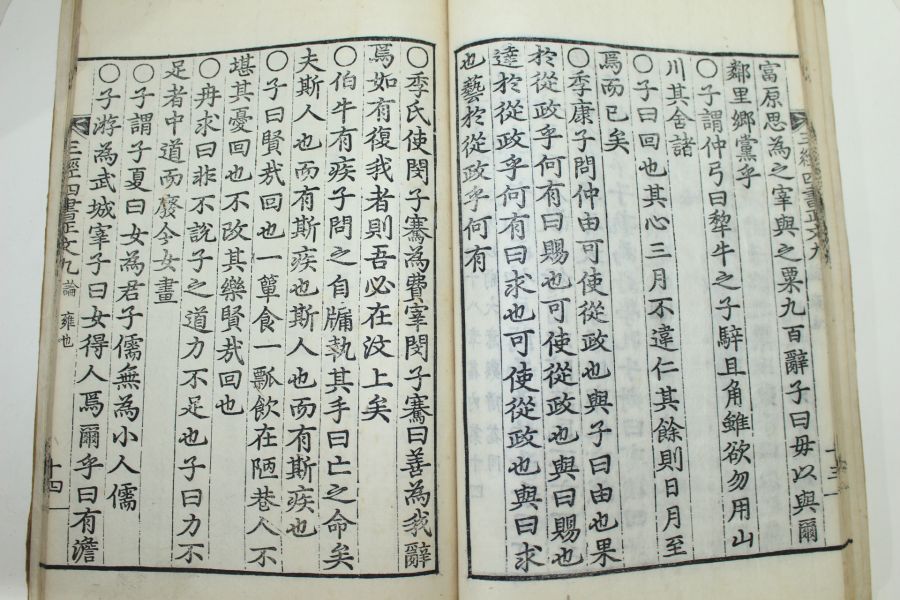 三經四書正文九
十三
富原思為之宰與之粟九百辭子曰毋以與爾
鄰里鄉黨乎
〇子謂仲弓曰犂牛之子騂且角雖欲勿用山
川其舍諸
〇子曰回也其心三月不違仁其餘則日月至
焉而已矣
〇季康子問仲由可使從政也與子曰由也果
於從政乎何有曰賜也可使從政也與曰賜也
達於從政乎何有曰求也可使從政也與曰求
也藝於從政乎何有
〇季氏使閔子騫為費宰閔子騫曰善為我辭
焉如有復我者則吾必在汶上矣
〇伯牛有疾子問之自牖執其手曰亡之命矣
夫斯人也而有斯疾也斯人也而有斯疾也
〇子曰賢哉回也一簞食一瓢飲在陋巷人不
堪其憂回也不改其樂賢哉回也
〇冉求曰非不說子之道力不足也子曰力不
足者中道而廢今女畫
〇子謂子夏曰女為君子儒無為小人儒
〇子游為武城宰子曰女得人焉爾乎曰有澹
三經四書正文九 論 雍也
十四